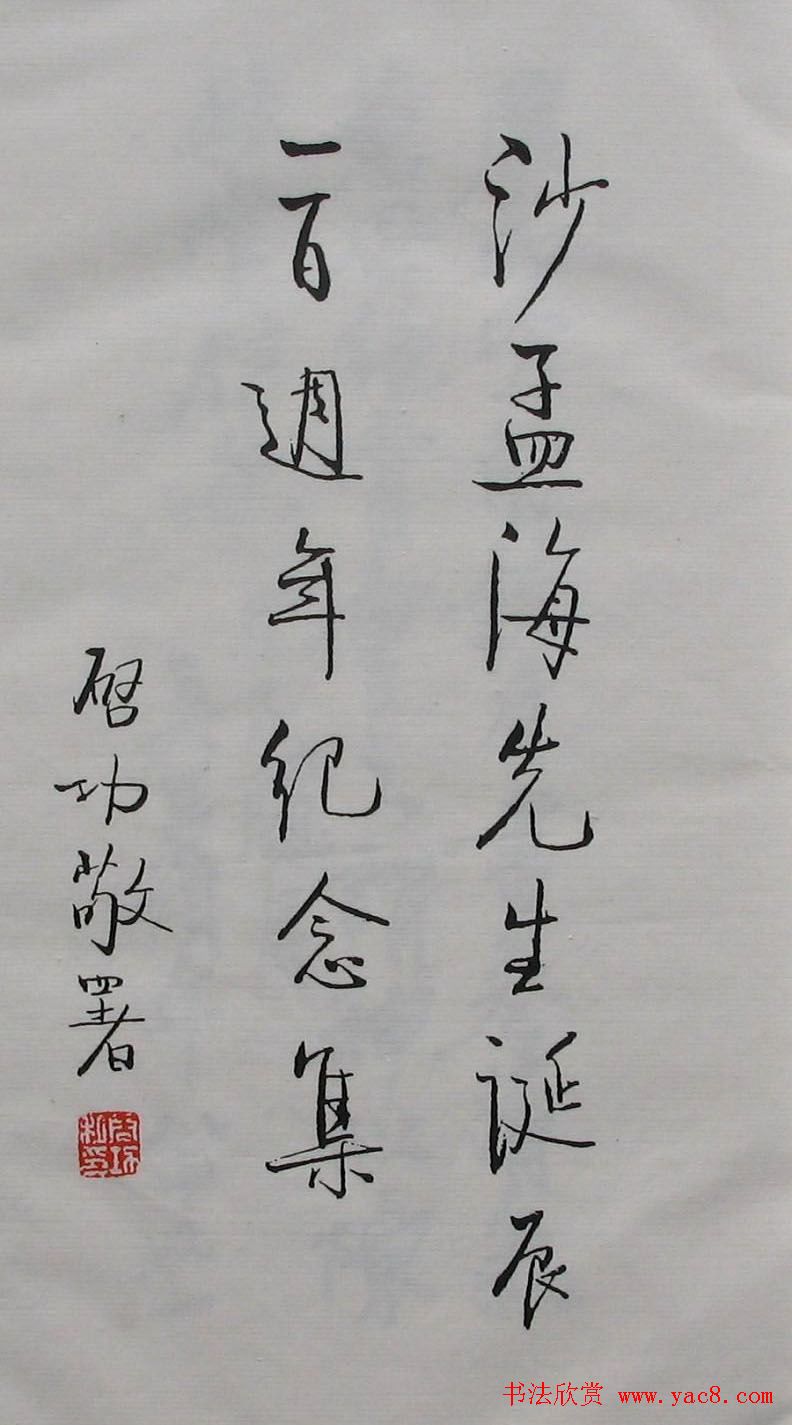 沙孟海先生誕辰
一百週年紀念集
启功敬署
启功私印
书法欣赏 www.yac8.com